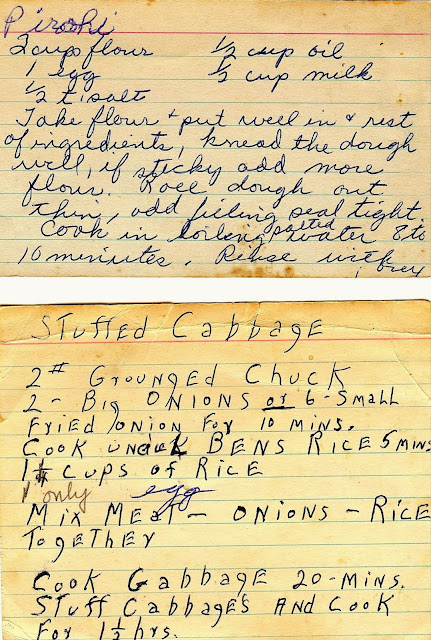 Piroshi
2 cup flour ½ cup oil
1 egg ½ cup milk
½ t. salt
Take flour + put well in + rest
of ingredients, knead the dough
well, if sticky add more
flour. Roll dough out
thin, add filling seal tight.
Cook in boiling salted water 8 to
10 miniutes. Rinse with
Stuffed Cabbage
2# Grounged Chuck
2 - Big Onions or 6 - Small
Fried onion for 10 mins.
Cook Uncle Bens Rice 5 mins
cups of Rice
1 only egg
Mix Meat - Onions - Rice
Together
Cook Gabbage 20 - mins.
Stuff Cabbages And Cook
For 1½ hrs.